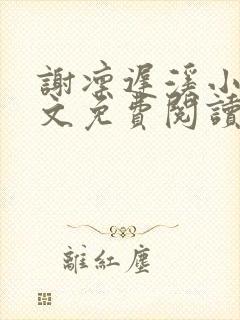 謝凛遲溪小
文免費閱讀
離紅塵